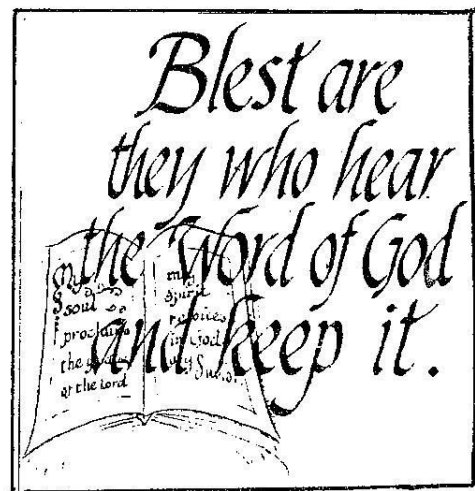 Blest are
they who hear
the Word of God
and keep it.
My
soul
proclaims
the
of the Lord
my
spirit
rejoices
in God
my